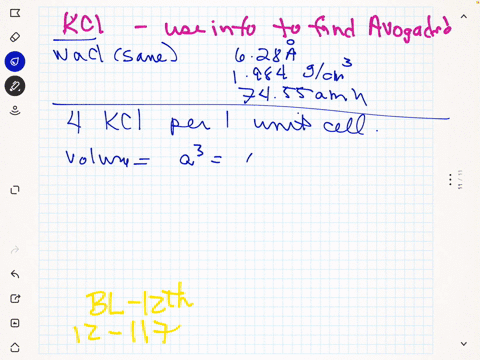 KCl - use info to find Avogadro
NaCl (same) 6.28Å
1.984 g/cm³
74.55 amu
4 KCl per 1 unit cell.
volume = a³ = (
BL-12th
12-117